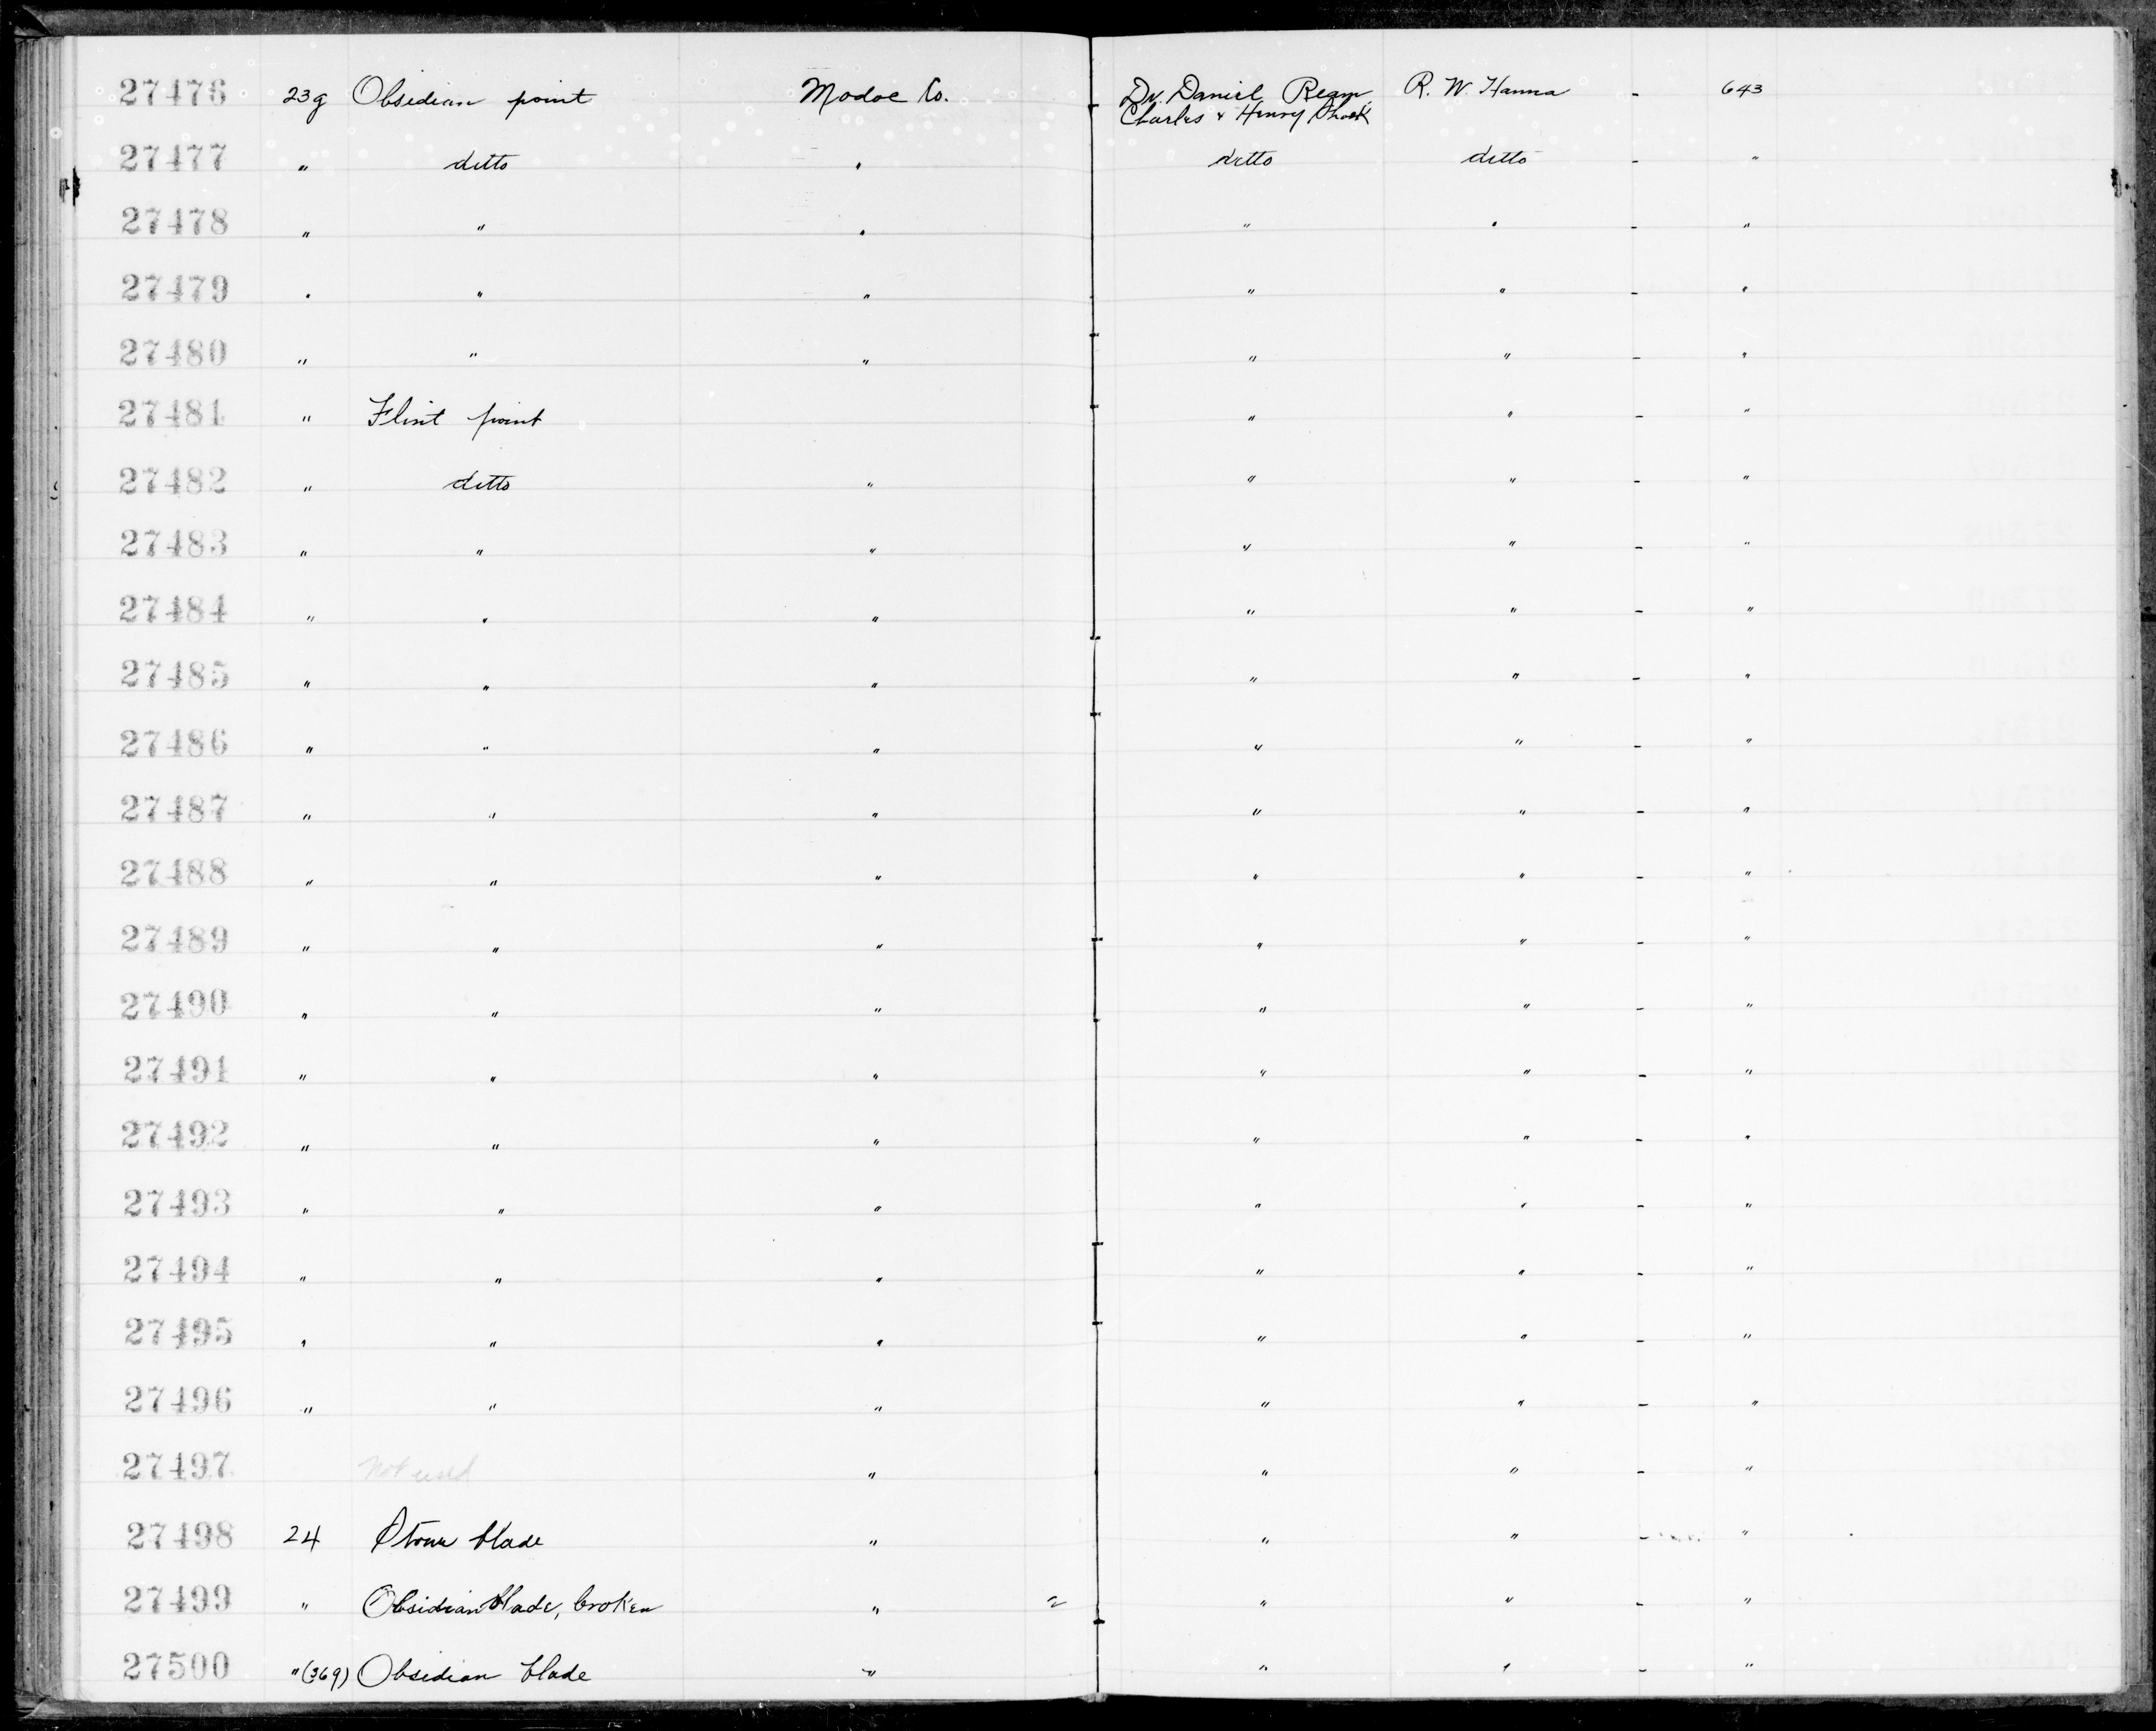 27476 23g Obsidian point Modoc Co. Dr. Daniel Ream, R. W. Hanna - 643
Charles & Henry
27477 " ditto " ditto ditto - "
27478 " " " " " - "
27479 " " " " " - "
27480 " " " " " - "
27481 " Flint point " " - "
27482 " ditto " " " - "
27483 " " " " " - "
27484 " " " " " - "
27485 " " " " " - "
27486 " " " " " - "
27487 " " " " " - "
27488 " " " " " - "
27489 " " " " " - "
27490 " " " " " - "
27491 " " " " " - "
27492 " " " " " - "
27493 " " " " " - "
27494 " " " " " - "
27495 " " " " " - "
27496 " " " " " - "
27497 Not used " " " - "
27498 24 Stone blade " " " - "
27499 " Obsidian blade, broken " 2 " " - "
27500 " (369) Obsidian blade " " " - "